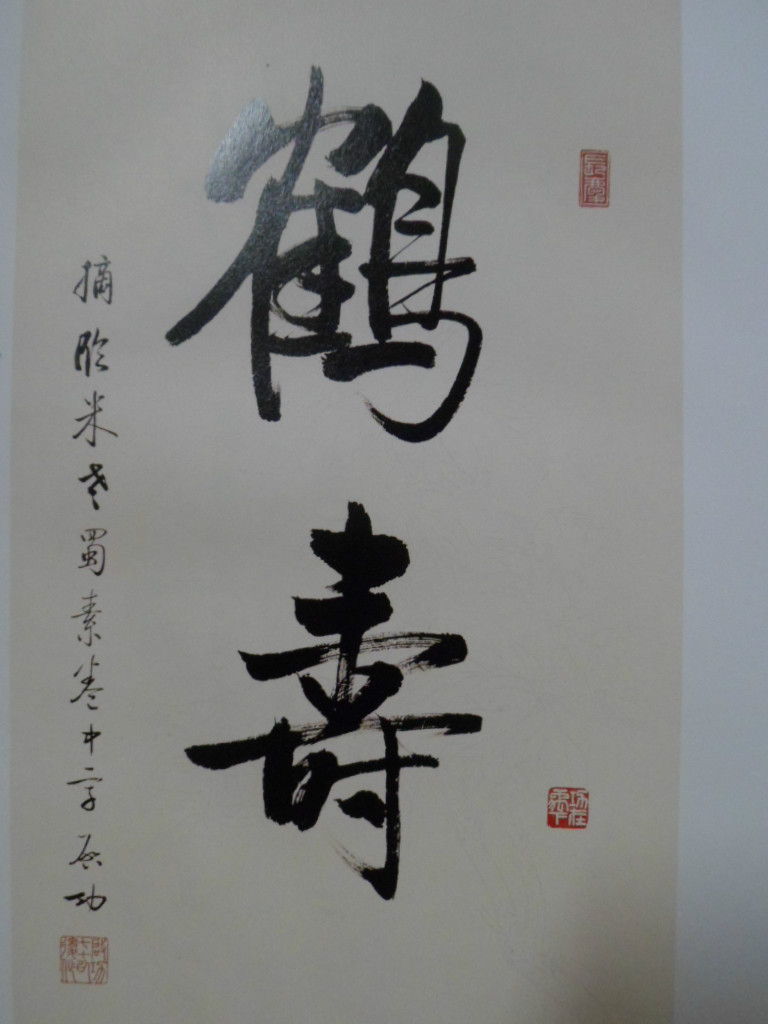 鶴壽
摘臨米老蜀素卷中字 啓功